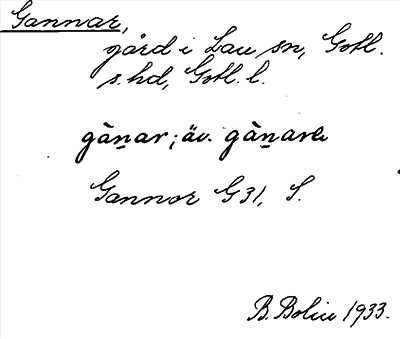 Gannar,
gård i Lau sn, Gotl.
s. hd, Gotl. l.
gàn̲ar; äv. gàn̲arḁ
Gannor G 31, S.
B. Bolin 1933.